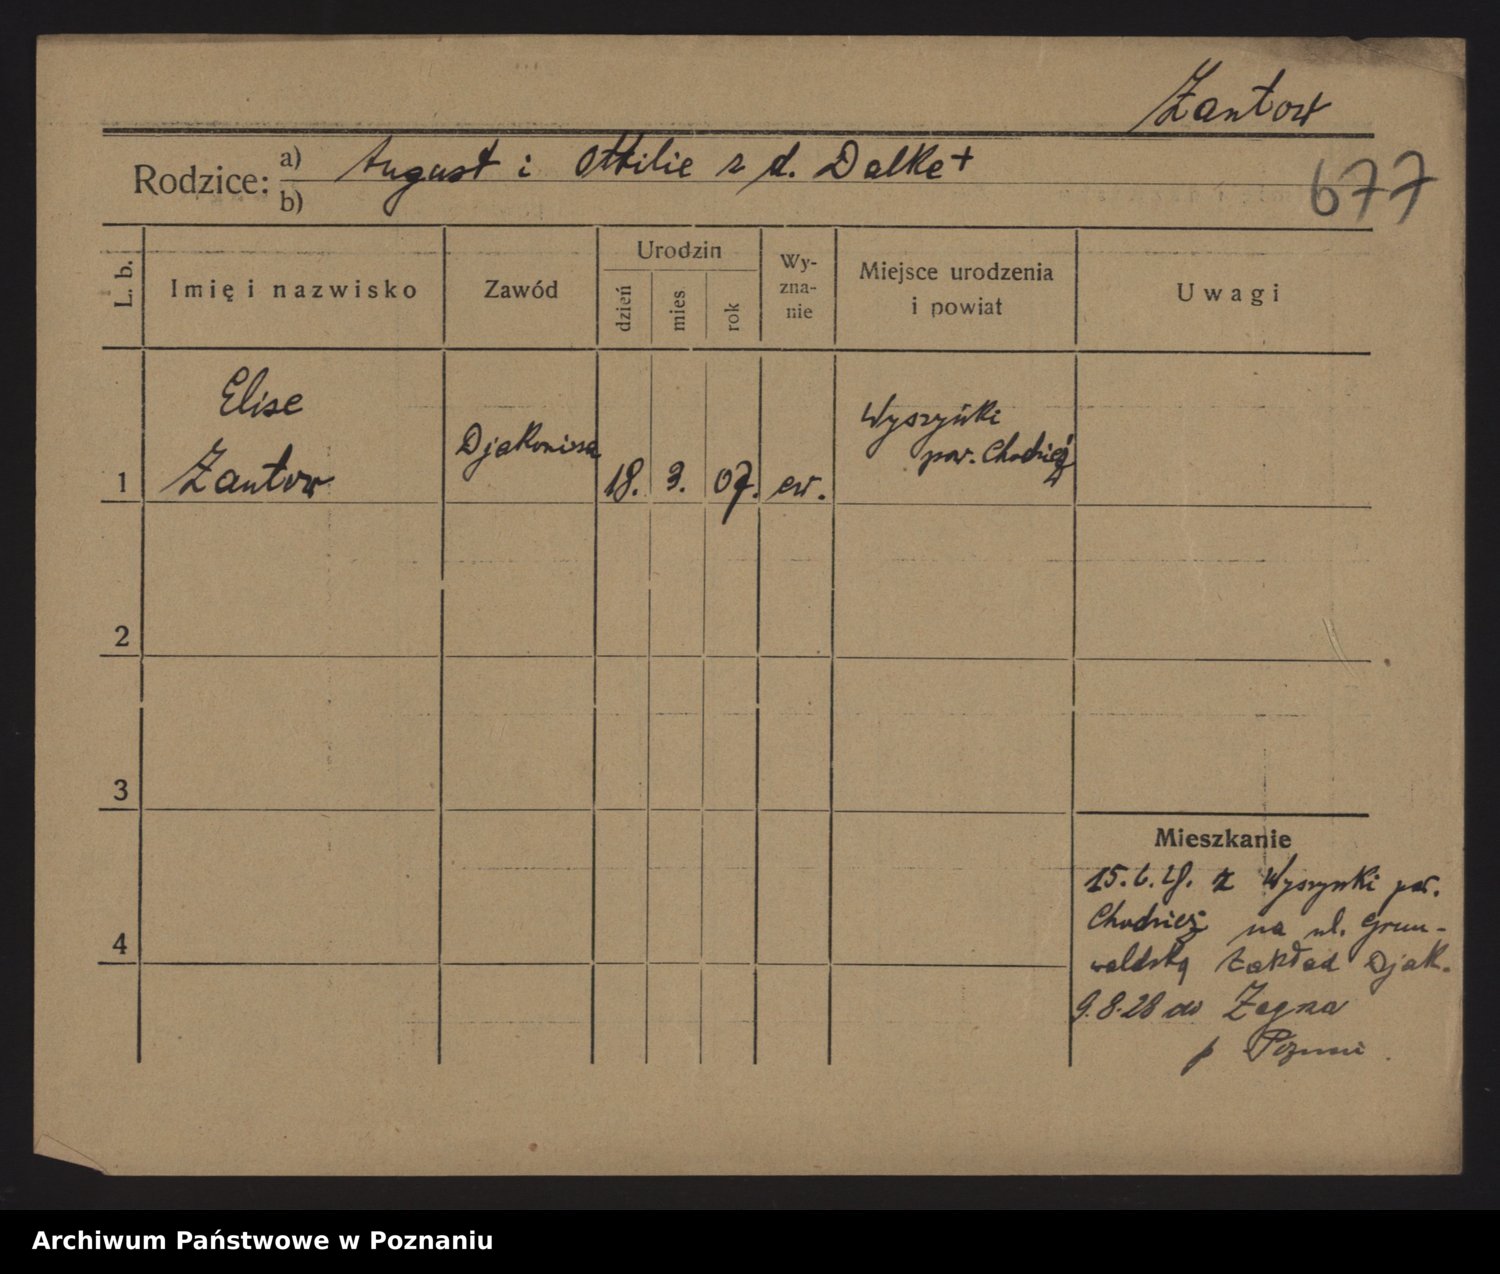 Zantow
Rodzice: a) August i Ottilie z d. Dalke +
b)
677
L. b.
Imię i nazwisko
Zawód
Urodzin
dzień
mies
rok
Wy-
zna-
nie
Miejsce urodzenia
i powiat
Uwagi
Elise
1 Zantow
Djakonissa
18. 3. 07. ew.
Wyszyńki
pow. Chodzież
2
3
4
Mieszkanie
15.6.28. z Wyszynki pow.
Chodzież na ul. Grun-
waldską Zakład Djak.
9.8.28 do
p
Archiwum Państwowe w Poznaniu